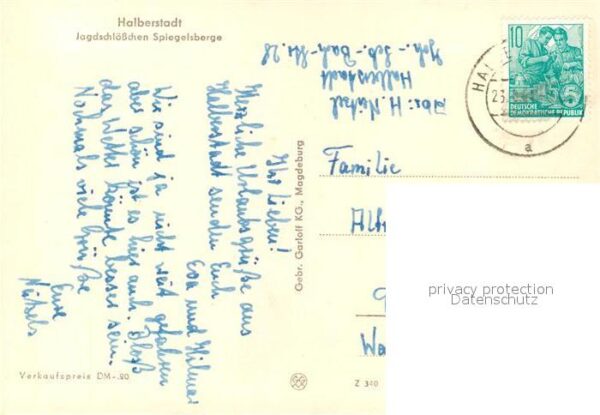 Halberstadt
Jagdschlößchen Spiegelsberge
Ihr Lieben!
Herzliche Urlaubsgrüße aus
Halberstadt senden Euch
Eva und Hilmar
Wir sind ja nicht weit gefahren
aber schön ist es hier auch. Bloß
das Wetter könnte besser sein.
Nochmals viele Grüße
Eure
Nützels
Verkaufspreis DM -.20
Gebr. Garloff KG., Magdeburg
Abs: H. Nützel
Halberstadt
Joh.-Seb.-Bach-Str. 28
10
DEUTSCHE
DEMOKRATISCHE REPUBLIK
HAL
23.
a
Familie
Alb
Wa
privacy protection
Datenschutz
Z 340